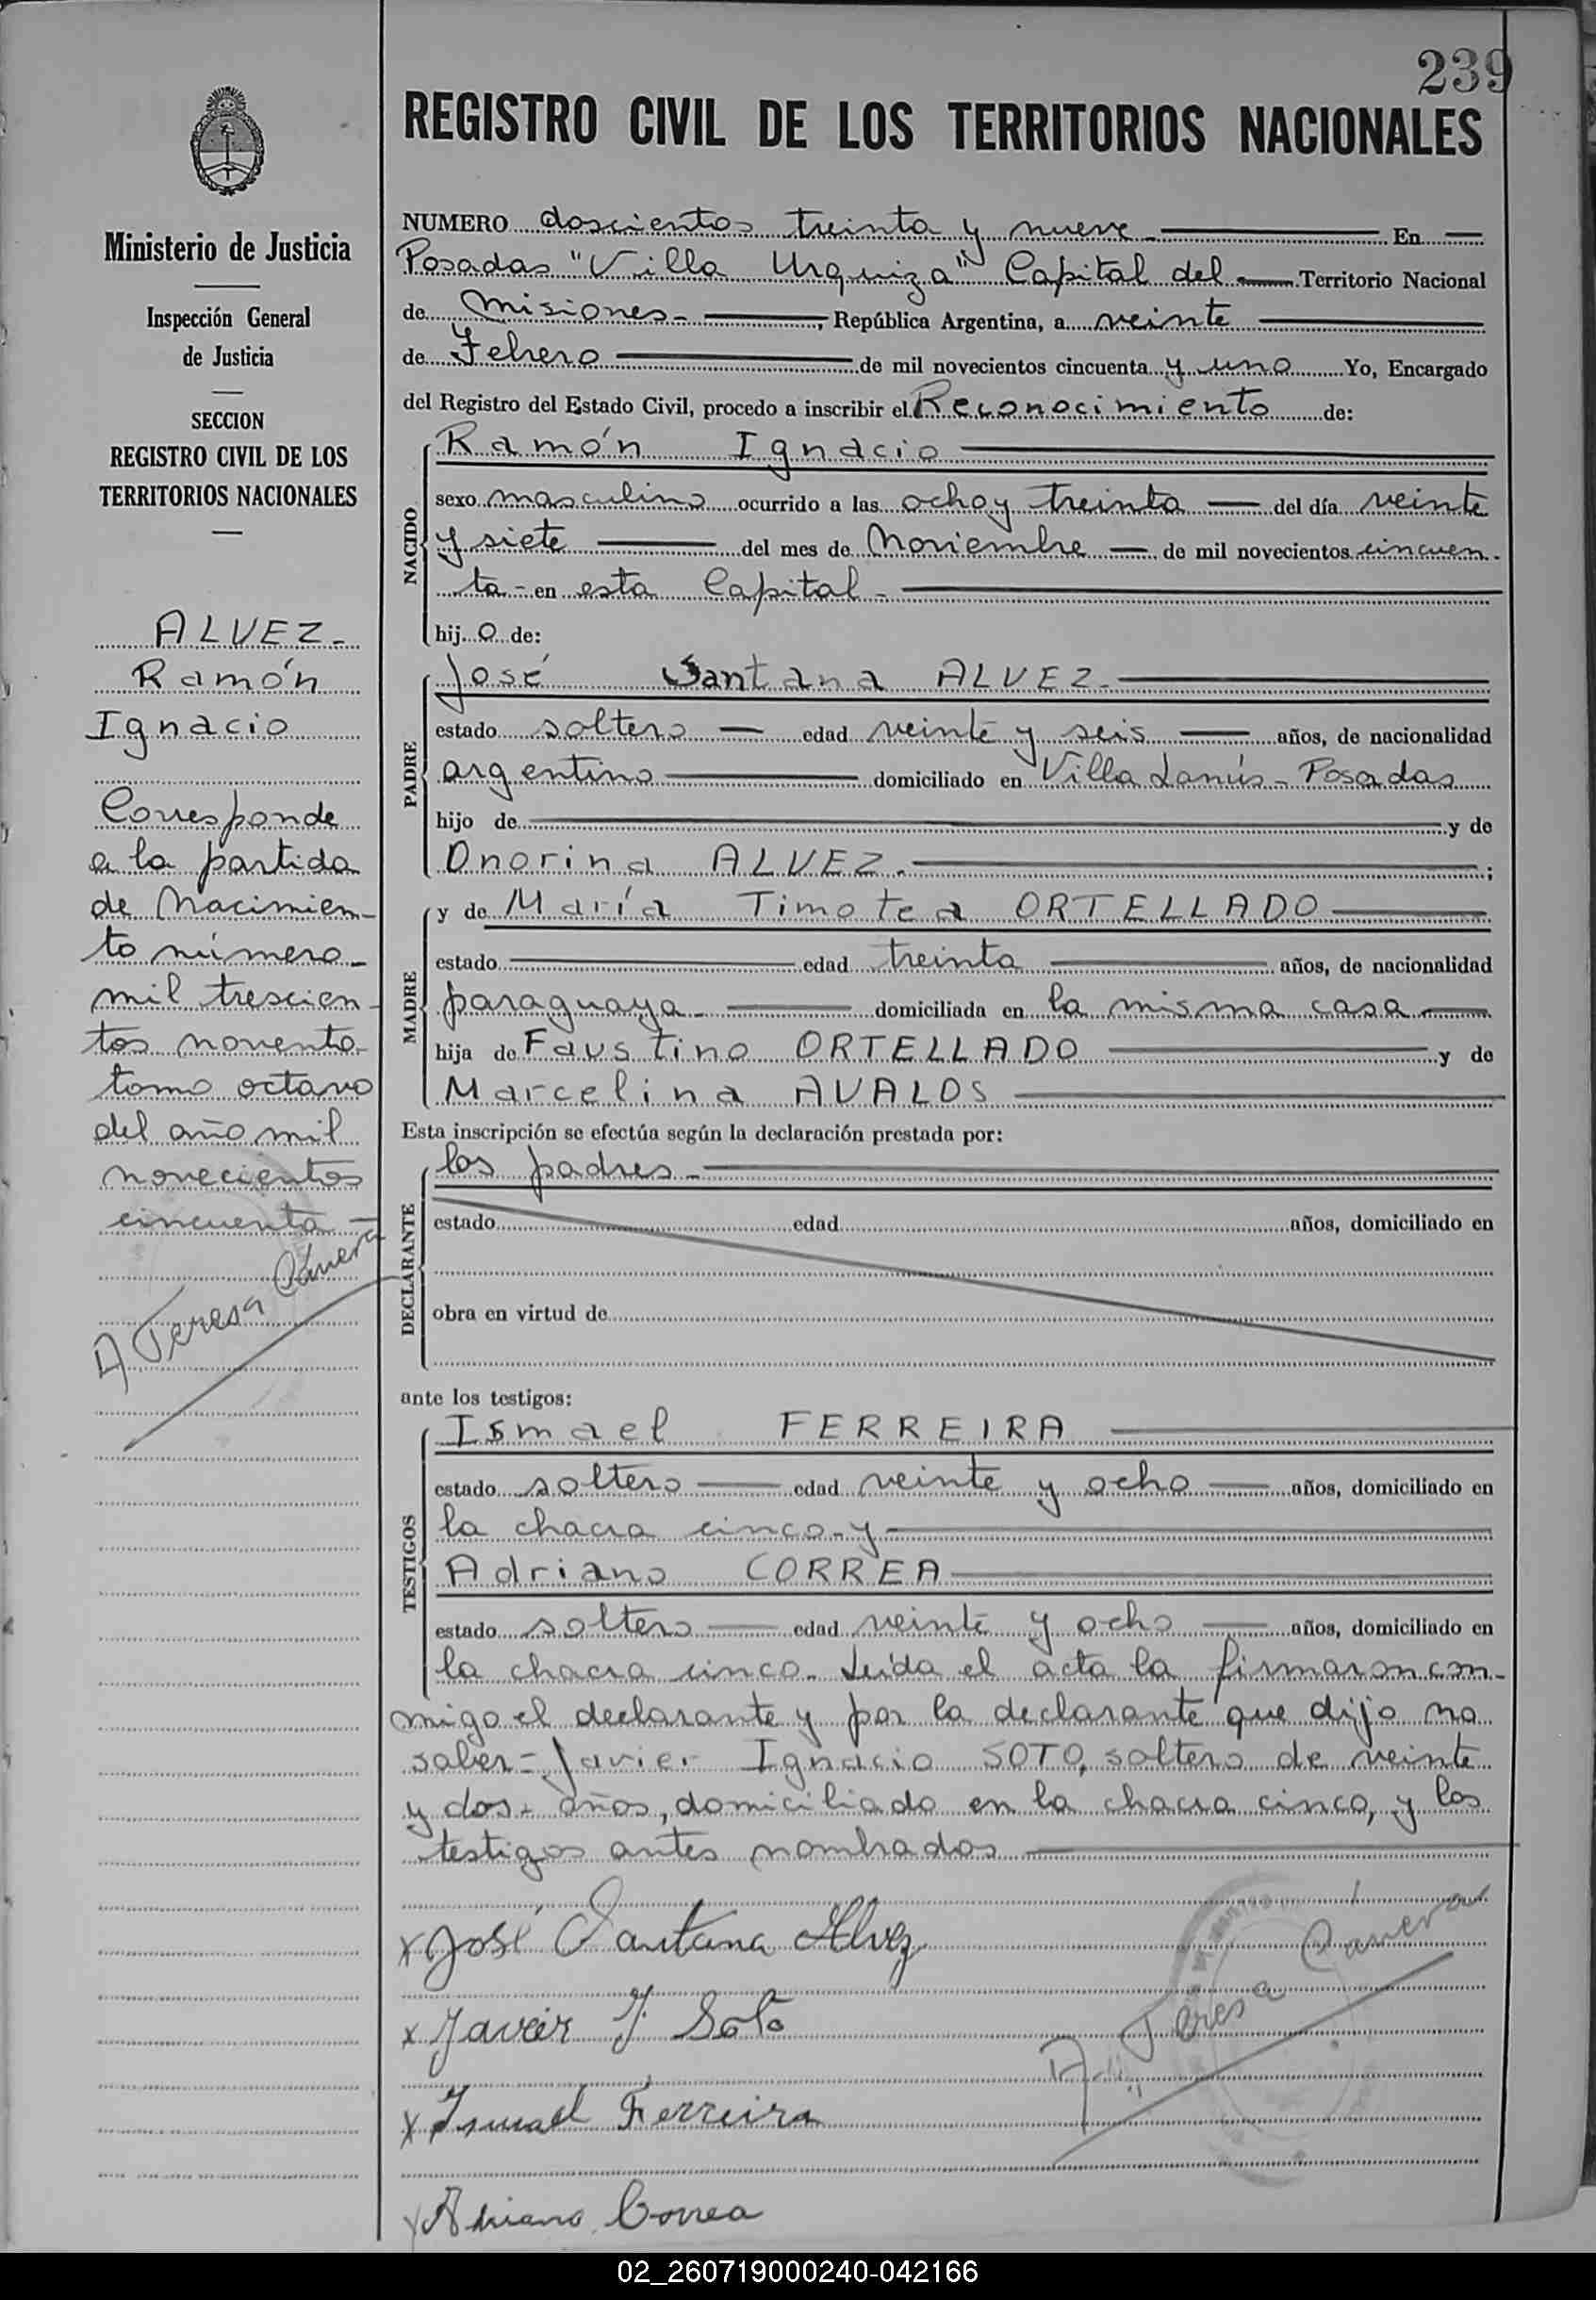 239
REGISTRO CIVIL DE LOS TERRITORIOS NACIONALES
Ministerio de Justicia
Inspección General
de Justicia
SECCION
REGISTRO CIVIL DE LOS
TERRITORIOS NACIONALES
ALVEZ.-
Ramón
Ignacio
Corresponde
a la partida
de Nacimien-
to número-
mil trescien-
tos noventa
tomo octavo
del año mil
novecientos
cincuenta-
A Teresa
NUMERO doscientos treinta y nueve- En
Posadas "Villa Urquiza" Capital del Territorio Nacional
de Misiones-, República Argentina, a veinte
de Febrero de mil novecientos cincuenta y uno Yo, Encargado
del Registro del Estado Civil, procedo a inscribir el Reconocimiento de:
NACIDO
Ramón Ignacio
sexo masculino ocurrido a las ocho y treinta del día veinte
y siete del mes de Noviembre de mil novecientos cincuen-
ta- en esta Capital-
hij o de:
PADRE
José Santana ALVEZ-
estado soltero edad veinte y seis años, de nacionalidad
argentino domiciliado en Villa Lanús- Posadas
hijo de y de
Onorina ALVEZ.;
MADRE
y de María Timotea ORTELLADO
estado edad treinta años, de nacionalidad
paraguaya- domiciliada en la misma casa
hija de Faustino ORTELLADO y de
Marcelina AVALOS
Esta inscripción se efectúa según la declaración prestada por:
DECLARANTE
los padres-
estado edad años, domiciliado en
obra en virtud de
ante los testigos:
TESTIGOS
Ismael FERREIRA
estado soltero edad veinte y ocho años, domiciliado en
la chacra cinco-y-
Adriano CORREA
estado soltero edad veinte y ocho años, domiciliado en
la chacra cinco- Leída el acta la firmaron con-
migo el declarante y por la declarante que dijo no
saber- Javier Ignacio SOTO, soltero de veinte
y dos- años, domiciliado en la chacra cinco, y los
testigos antes nombrados
x José Santana Alvez
x Javier I. Soto
x Ismael Ferreira
x Adriano Correa
A. Teresa
02_260719000240-042166